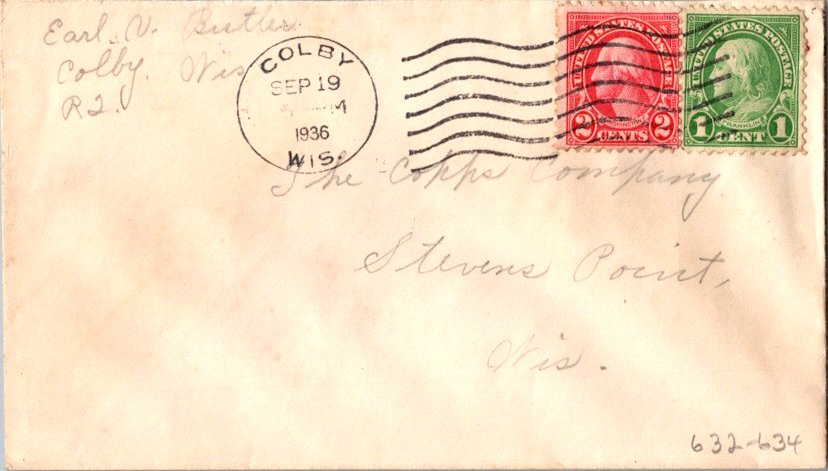 Earl. V. Butler.
Colby. Wis
R2.
COLBY
SEP 19
M
1936
WIS.
UNITED STATES POSTAGE
2 CENTS 2
UNITED STATES POSTAGE
FRANKLIN
1 CENT 1
The Copps Company
Stevens Point,
Wis.
632-634